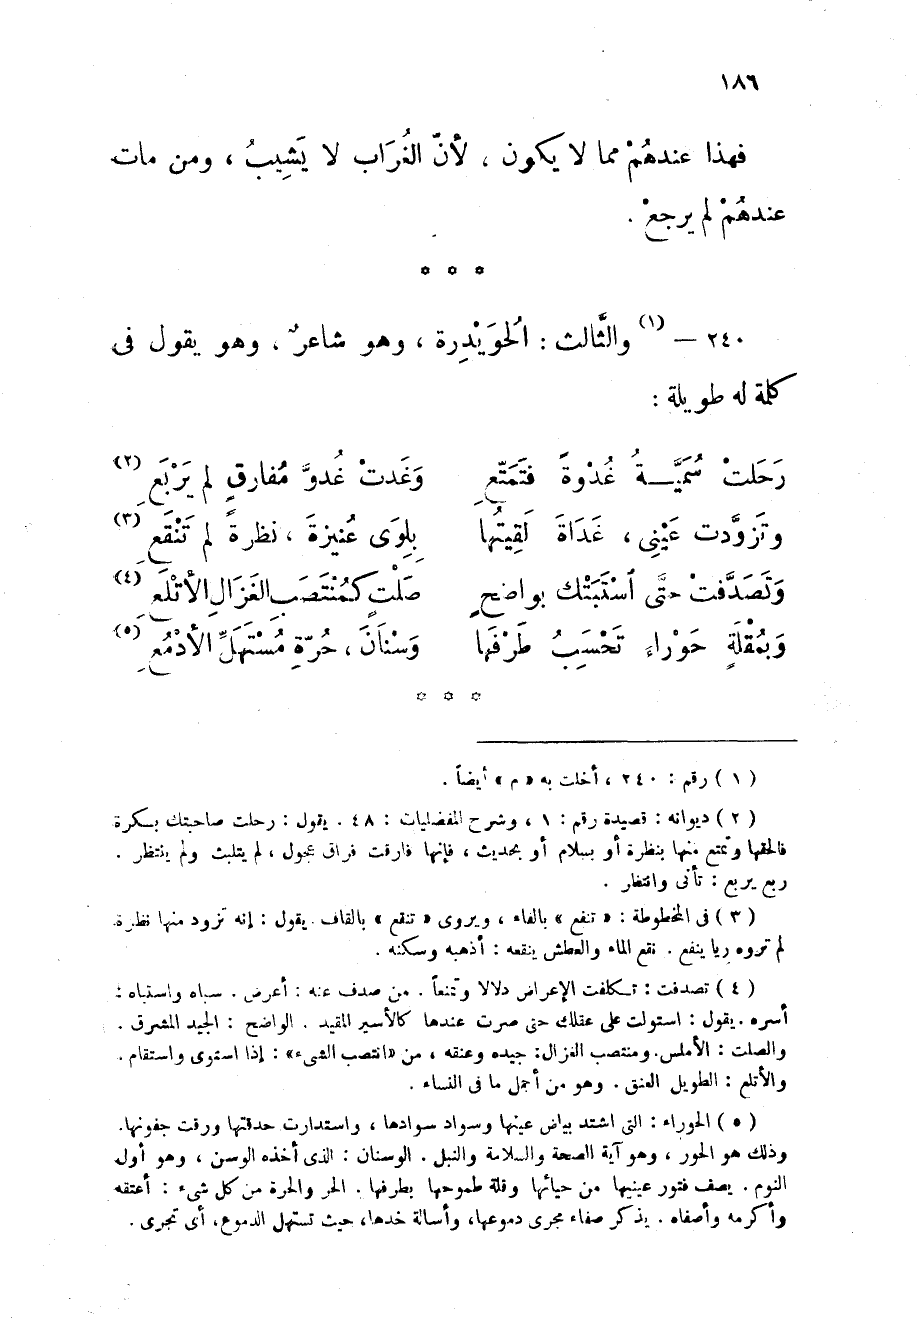 ١٨٦
فهذا عندهُمْ مما لا يكون ، لأنّ الغُرَاب لا يَشِيبُ ، ومن مات
عندهُمْ لم يرجعْ .
* * *
٢٤٠ – (١) والثَّالث : الحُوَيْدِرة ، وهو شاعرٌ . وهو يقول فى
كلمة له طويلة :
رَحَلتْ سُمَيَّــةُ غُدْوةً فتَمَتَّعِ وَغَدتْ غُدوَّ مُفارقٍ لم يَرْبَعِ (٢)
وتَزوَّدت عَيْنِى ، غَدَاةَ لَقِيتُها بِلِوَى عُنيزةَ ، نظرةً لم تَنْقَعِ (٣)
وَتَصَدَّفتْ حتَّى ٱسْتَبَتْك بواضحٍ صَلْتٍ كمُنْتَصَبِ الغَزالِ الأتْلَعِ (٤)
وَبمُقْلَةٍ حَوْراءَ تَحْسَبُ طَرْفَها وَسْنَانَ ، حُرّةِ مُسْتَهَلِّ الأدْمُعِ (٥)
* * *
( ١ ) رقم : ٢٤٠ ، أخلت به « م » أيضاً .
( ٢ ) ديوانه : قصيدة رقم : ١ ، وشرح المفضليات : ٤٨ . يقول : رحلت صاحبتك بسكرة
فالحقها وتمتع منها بنظرة أو بسلام أو بحديث ، فإنها فارقت فراق عجول ، لم يتلبث ولم ينتظر .
ربع يربع : تأنى وانتظر .
( ٣ ) فى المخطوطة : « تنفع » بالفاء ، ويروى « تنقع » بالقاف . يقول : إنه تزود منها نظرة
لم تروه ريا ينفع . نقع الماء والعطش ينقعه : أذهبه وسكنه .
( ٤ ) تصدفت : تكلفت الإعراض دلالا وتمنعاً . من صدف عنه : أعرض . سباه واستباه :
أسره . يقول : استولت على عقلك حتى صرت عندها كالأسير المقيد . الواضح : الجيد المشرق .
والصلت : الأملس. ومنتصب الغزال: جيده وعنقه ، من «انتصب الشىء» : إذا استوى واستقام .
والأتلع : الطويل العنق . وهو من أجمل ما فى النساء .
( ٥ ) الحوراء : التى اشتد بياض عينها وسواد سوادها ، واستدارت حدقتها ورقت جفونها.
وذلك هو الحور ، وهو آية الصحة والسلامة والنبل . الوسنان : الذى أخذه الوسن ، وهو أول
النوم . يصف فتور عينيها من حيائها وقلة طموحها بطرفها . الحر والحرة من كل شىء : أعتقه
وأكرمه وأصفاه . يذكر صفاء مجرى دموعها، وأسالة خدها، حيث تستهل الدموع، أى تجرى .